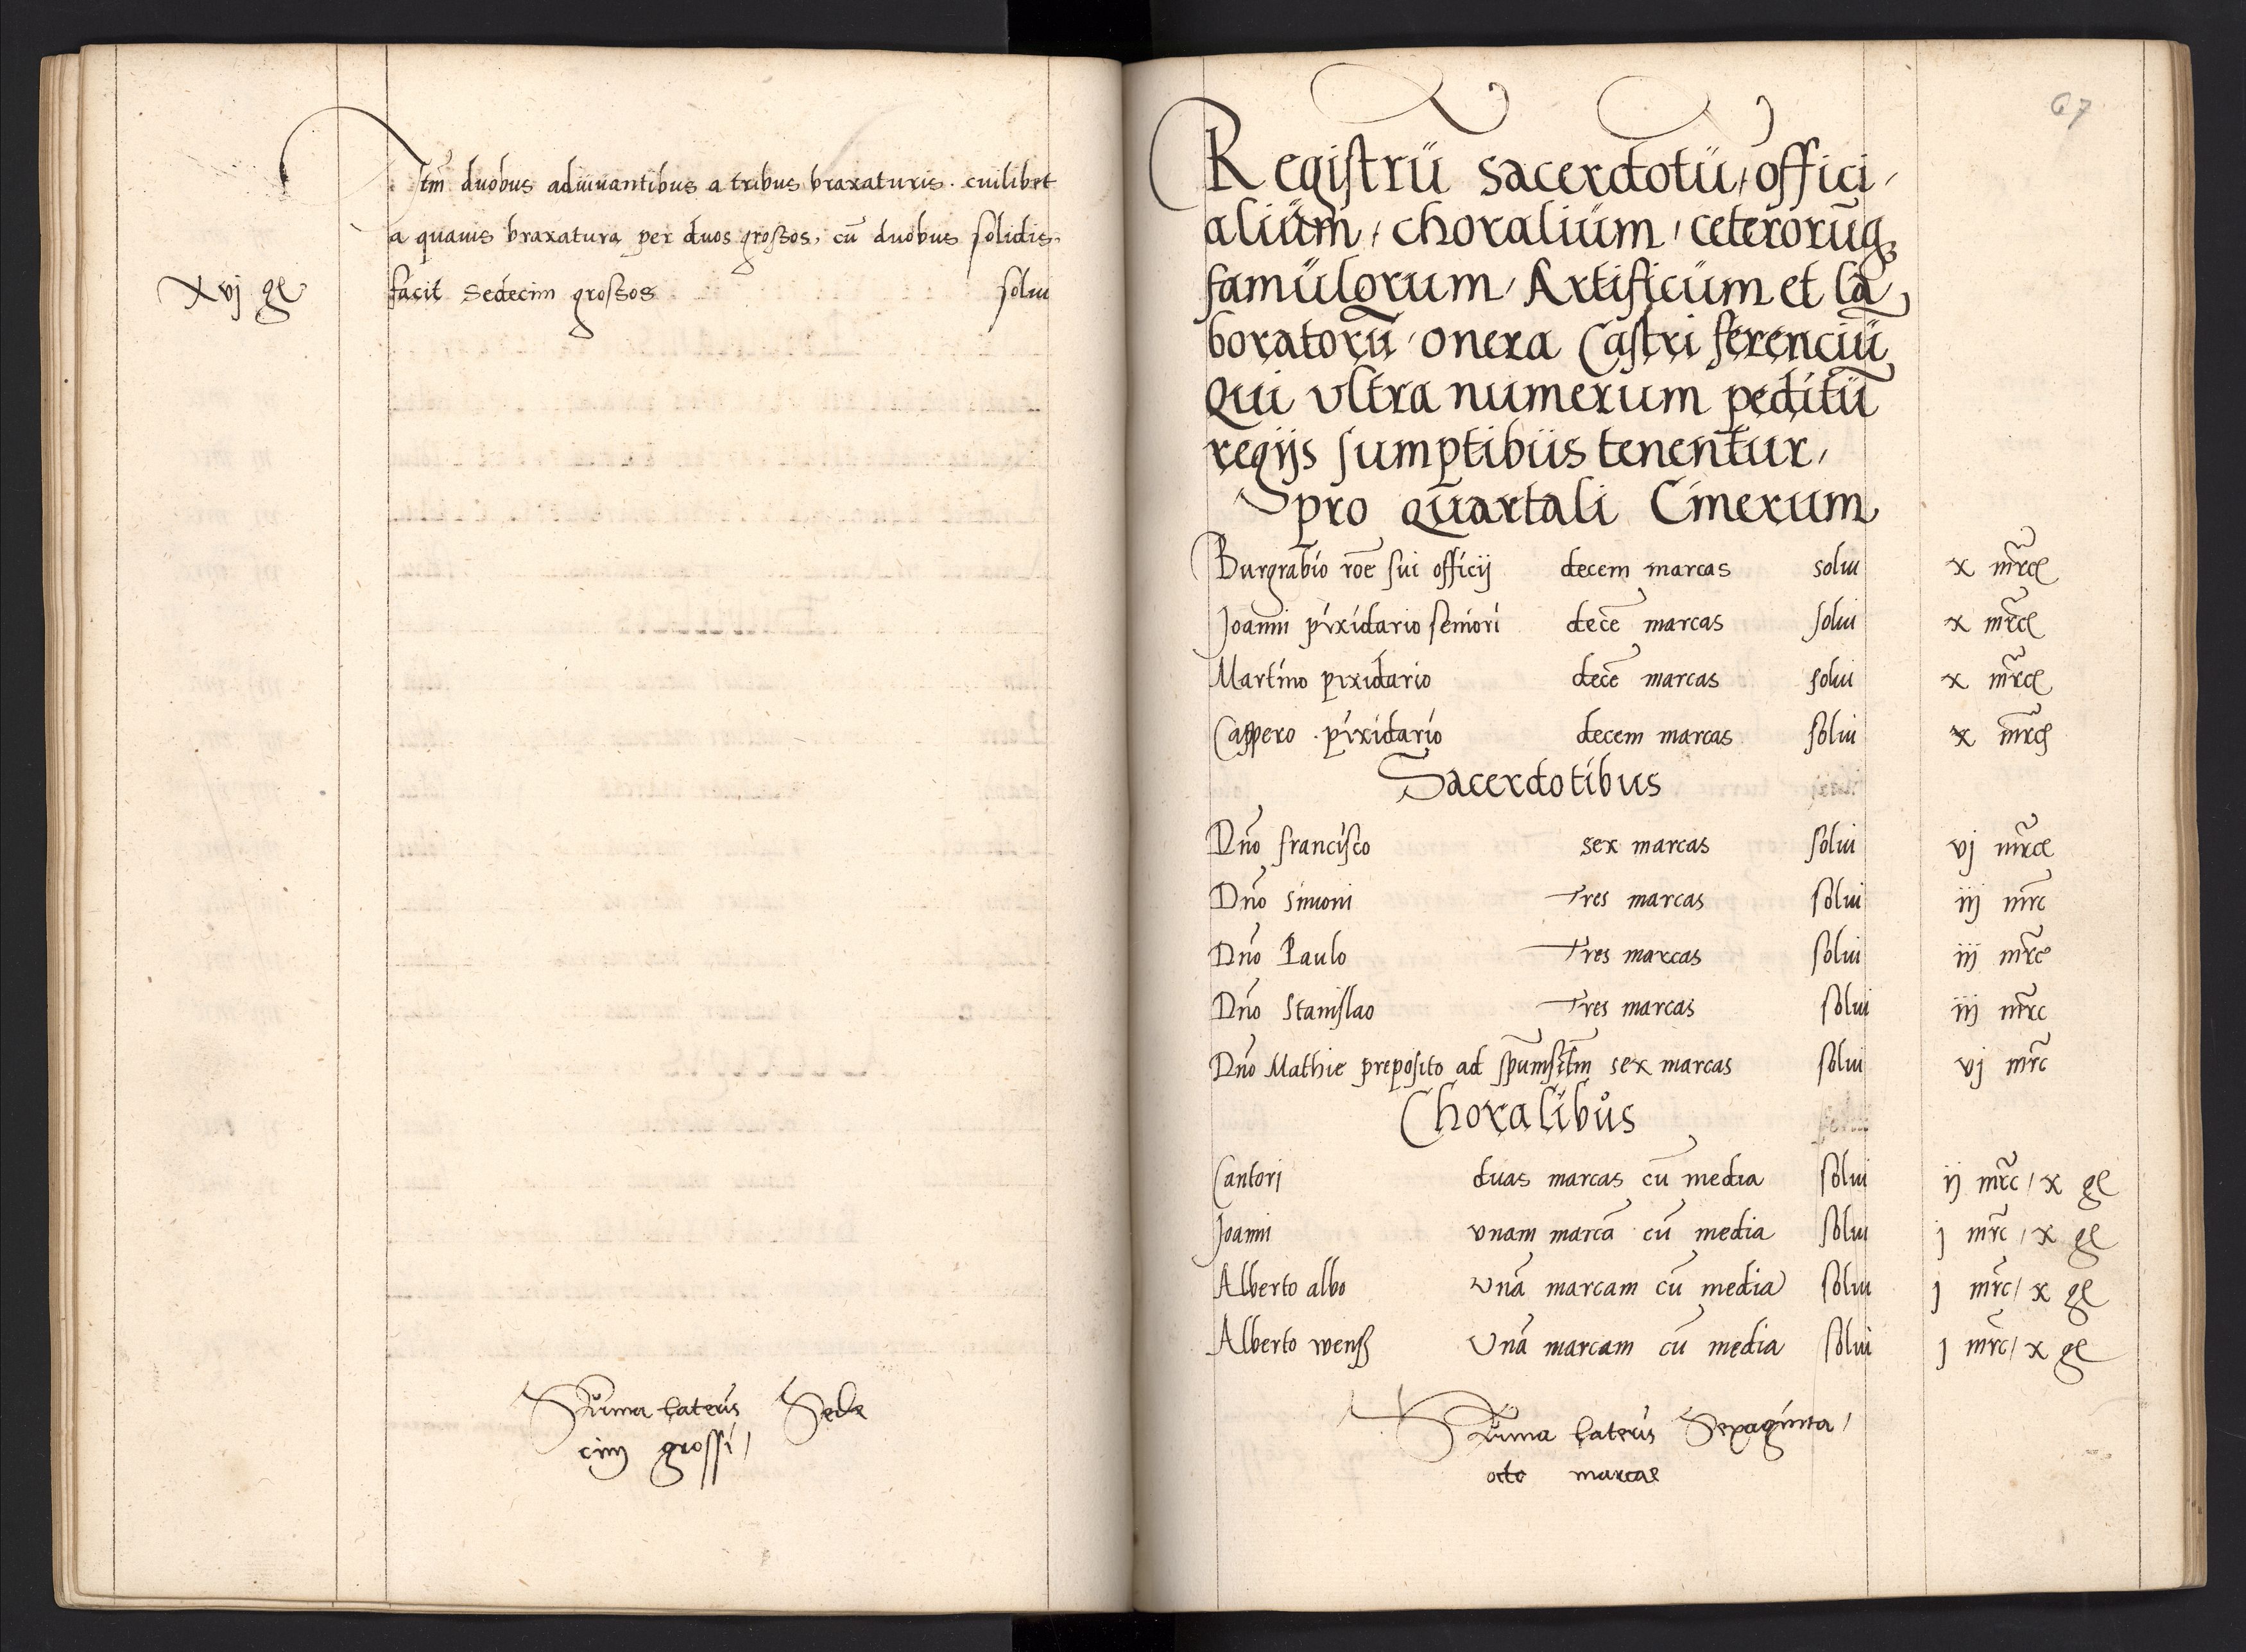 Itm̄ duobus adiuuantibus a tribus braxaturis. cuilibet
a quauis braxatura per duos grossos, cū duobus solidis,
xvj gͦ facit sedecim grossos solui
Suma lateris Sede
cim grossi /
67
Registrū sacerdotū, offici,
aliům, choraliům, ceterorūqꝫ
famůlorum, Artificům et la
boratorū, onera Castri ferenciū
Qui vltra numerum peditū
regijs sumptibus tenentur,
pro quartali Cinerum
Burgrabio roē sui officij decem marcas solui x mrc̃
Joanni pixidario seniori decē marcas solui x mrc̃
Martino pixidario decē marcas solui x mrc̃
Caspero pixidario decem marcas solui x mrc̃
Sacerdotibus
Dn̄o francisco sex marcas solui vj mrc̃
Dn̄o simoni Tres marcas solui iij mrc̃
Dn̄o Paulo Tres marcas solui iij mrc̃
Dn̄o Stanislao Tres marcas solui iij mrc̃
Dn̄o Mathie preposito ad sp̄umsctm̄ sex marcas solui vj mrc̃
Choralibůs
Cantori duas marcas cū media solui ij mrc̃ / x gͦ
Joanni vnam marcā cū media solui j mrc̃ / x gͦ
Alberto albo vnā marcam cū media solui j mrc̃ / x gͦ
Alberto wenß Vnā marcam cū media solui j mrc̃ / x gͦ
Suma lateris Sexaginta /
octo marcae